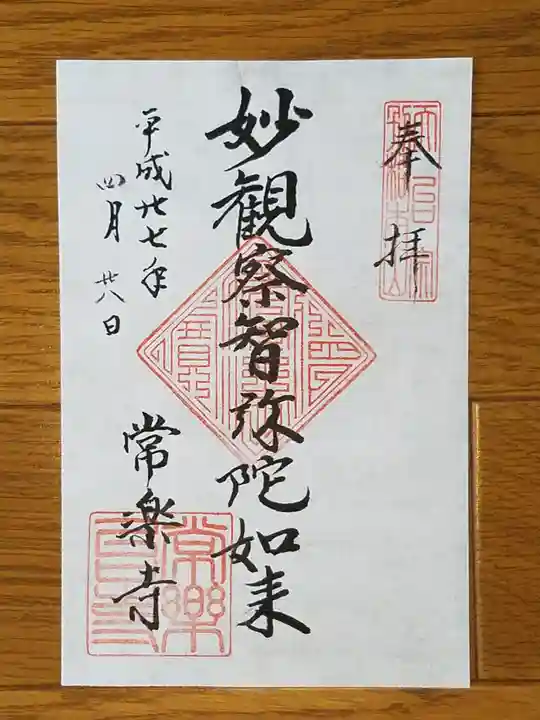 奉拝
妙観察智弥陀如来
平成廿七年
四月廿八日
常楽寺
常樂